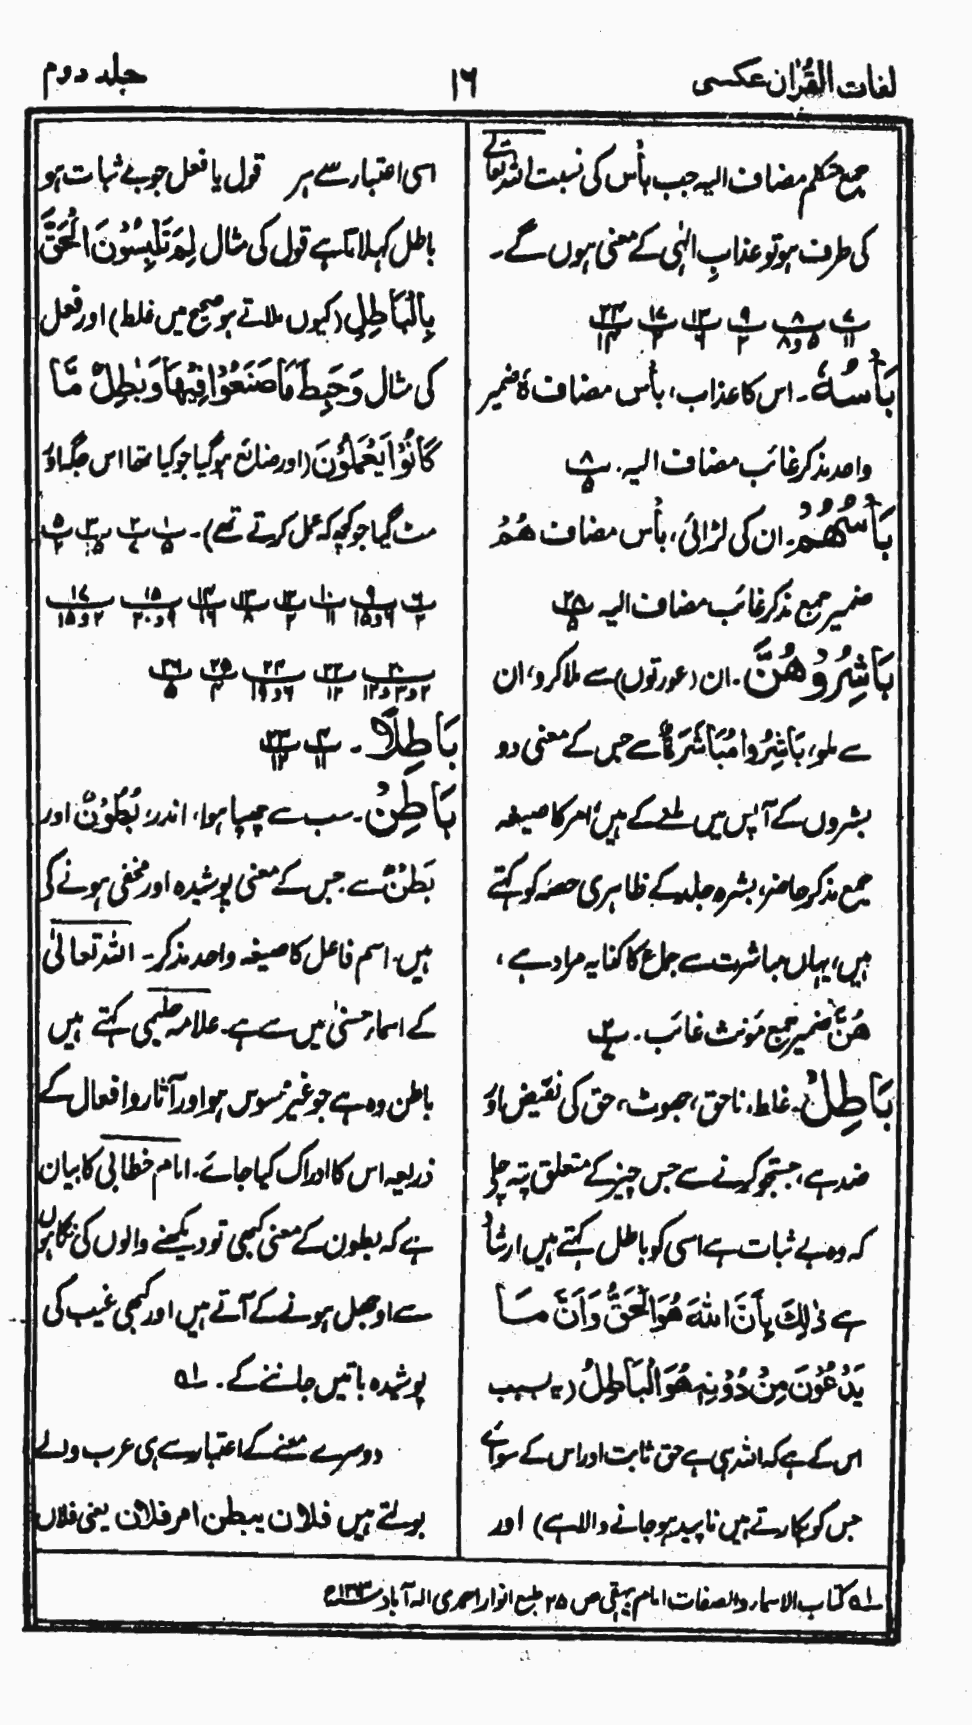 لغات القرآن عکسی
۱۶
جلد دوم
جمع متکلم مضاف الیہ جب بأس کی نسبت اللہ تعالٰے
کی طرف ہو تو عذابِ الٰہی کے معنی ہوں گے۔
۷/۱۱ ۸/۵ و ۸ ۹/۲ ۱۳/۶ ۱۷/۲ ۲۳/۱۴
بَأْسُہٗ۔ اس کا عذاب، بأس مضاف ہٗ ضمیر
واحد مذکر غائب مضاف الیہ۔ ۸/۵
بَأْسُھُمْ۔ ان کی لڑائی، بأس مضاف ھُمْ
ضمیر جمع مذکر غائب مضاف الیہ ۲۸/۵
بَاشِرُوْھُنَّ۔ ان (عورتوں) سے ملا کرو، ان
سے ملو، بَاشِرُوا مُبَاشَرَۃٌ سے جس کے معنی دو
بشروں کے آپس میں ملنے کے ہیں امر کا صیغہ
جمع مذکر حاضر، بشرہ جلد کے ظاہری حصہ کو کہتے
ہیں، یہاں مباشرت سے جماع کا کنایہ مراد ہے،
ھُنَّ ضمیر جمع مؤنث غائب۔ ۲/۷
بَاطِلٌ۔ غلط، ناحق، جھوٹ، حق کی نقیض اور
ضد ہے، جستجو کرنے سے جس چیز کے متعلق پتہ چلے
کہ وہ بے ثبات ہے اسی کو باطل کہتے ہیں ارشاد
ہے ذٰلِكَ بِأَنَّ اللّٰهَ هُوَ الْحَقُّ وَأَنَّ مَا
يَدْعُوْنَ مِنْ دُوْنِهٖ هُوَ الْبَاطِلُ (یہ سبب
اس کے ہے کہ اللہ ہی ہے حق ثابت اور اس کے سوائے
جس کو پکارتے ہیں ناپید ہو جانے والا ہے) اور
اسی اعتبار سے ہر قول یا فعل جو بے ثبات ہو
باطل کہلاتا ہے قول کی مثال لِمَ تَلْبِسُوْنَ الْحَقَّ
بِالْبَاطِلِ (کیوں ملاتے ہو صحیح میں غلط) اور فعل
کی مثال وَحَبِطَ مَا صَنَعُوْا فِيْهَا وَبٰطِلٌ مَّا
كَانُوْا يَعْمَلُوْنَ (اور ضائع ہو گیا جو کیا تھا اس جگہ اور
مٹ گیا جو کچھ کہ عمل کرتے تھے)۔ ۱/۵ ۲/۷ ۳/۱۵ ۵/۲
۶/۲ ۹/۶ و ۱۵ ۱۰/۱۱ ۱۲/۲ ۱۳/۸ ۱۴/۱۶ ۱۵/۹ و ۲۰ ۱۷/۲ و ۱۵
۲۰/۲ و ۳ و ۱۲ ۲۲/۱۲ ۲۴/۶ و ۱۹ ۲۵/۴ ۲۶/۵
بَاطِلًا۔ ۴/۱۱ ۲۳/۱۲
بَاطِنٌ۔ سب سے چھپا ہوا، اندر، بُطُوْنٌ اور
بَطْنٌ سے جس کے معنی پوشیدہ اور مخفی ہونے کی
ہیں، اسم فاعل کا صیغہ واحد مذکر۔ اللہ تعالٰی
کے اسماء حسنٰی میں سے ہے۔ علامہ حلیمی کہتے ہیں
باطن وہ ہے جو غیر محسوس ہو اور آثار و افعال کے
ذریعہ اس کا ادراک کیا جائے۔ امام خطابی کا بیان
ہے کہ بطون کے معنی کبھی تو دیکھنے والوں کی نگاہوں
سے اوجھل ہونے کے آتے ہیں اور کبھی غیب کی
پوشیدہ باتیں جاننے کے۔ ۱ه
دوسرے معنے کے اعتبار سے ہی عرب والے
بولتے ہیں فلان یبطن امر فلان یعنی فلاں
۱ه کتاب الاسماء والصفات امام بیہقی ص ۲۵ طبع انوار احمدی الہ آباد ۱۳۱۳ھ